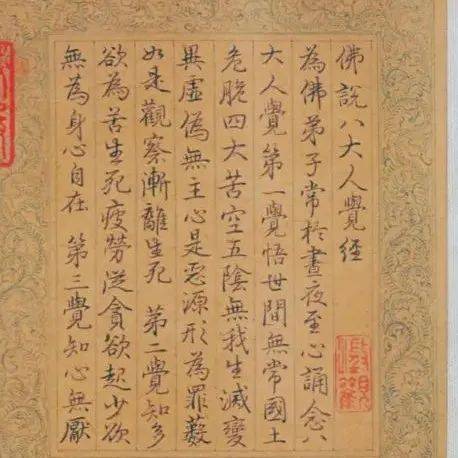 佛說八大人覺經
為佛弟子常於晝夜至心誦念八
大人覺第一覺悟世間無常國土
危脆四大苦空五陰無我生滅變
異虛偽無主心是惡源形為罪藪
如是觀察漸離生死 第二覺知多
欲為苦生死疲勞從貪欲起少欲
無為身心自在 第三覺知心無厭